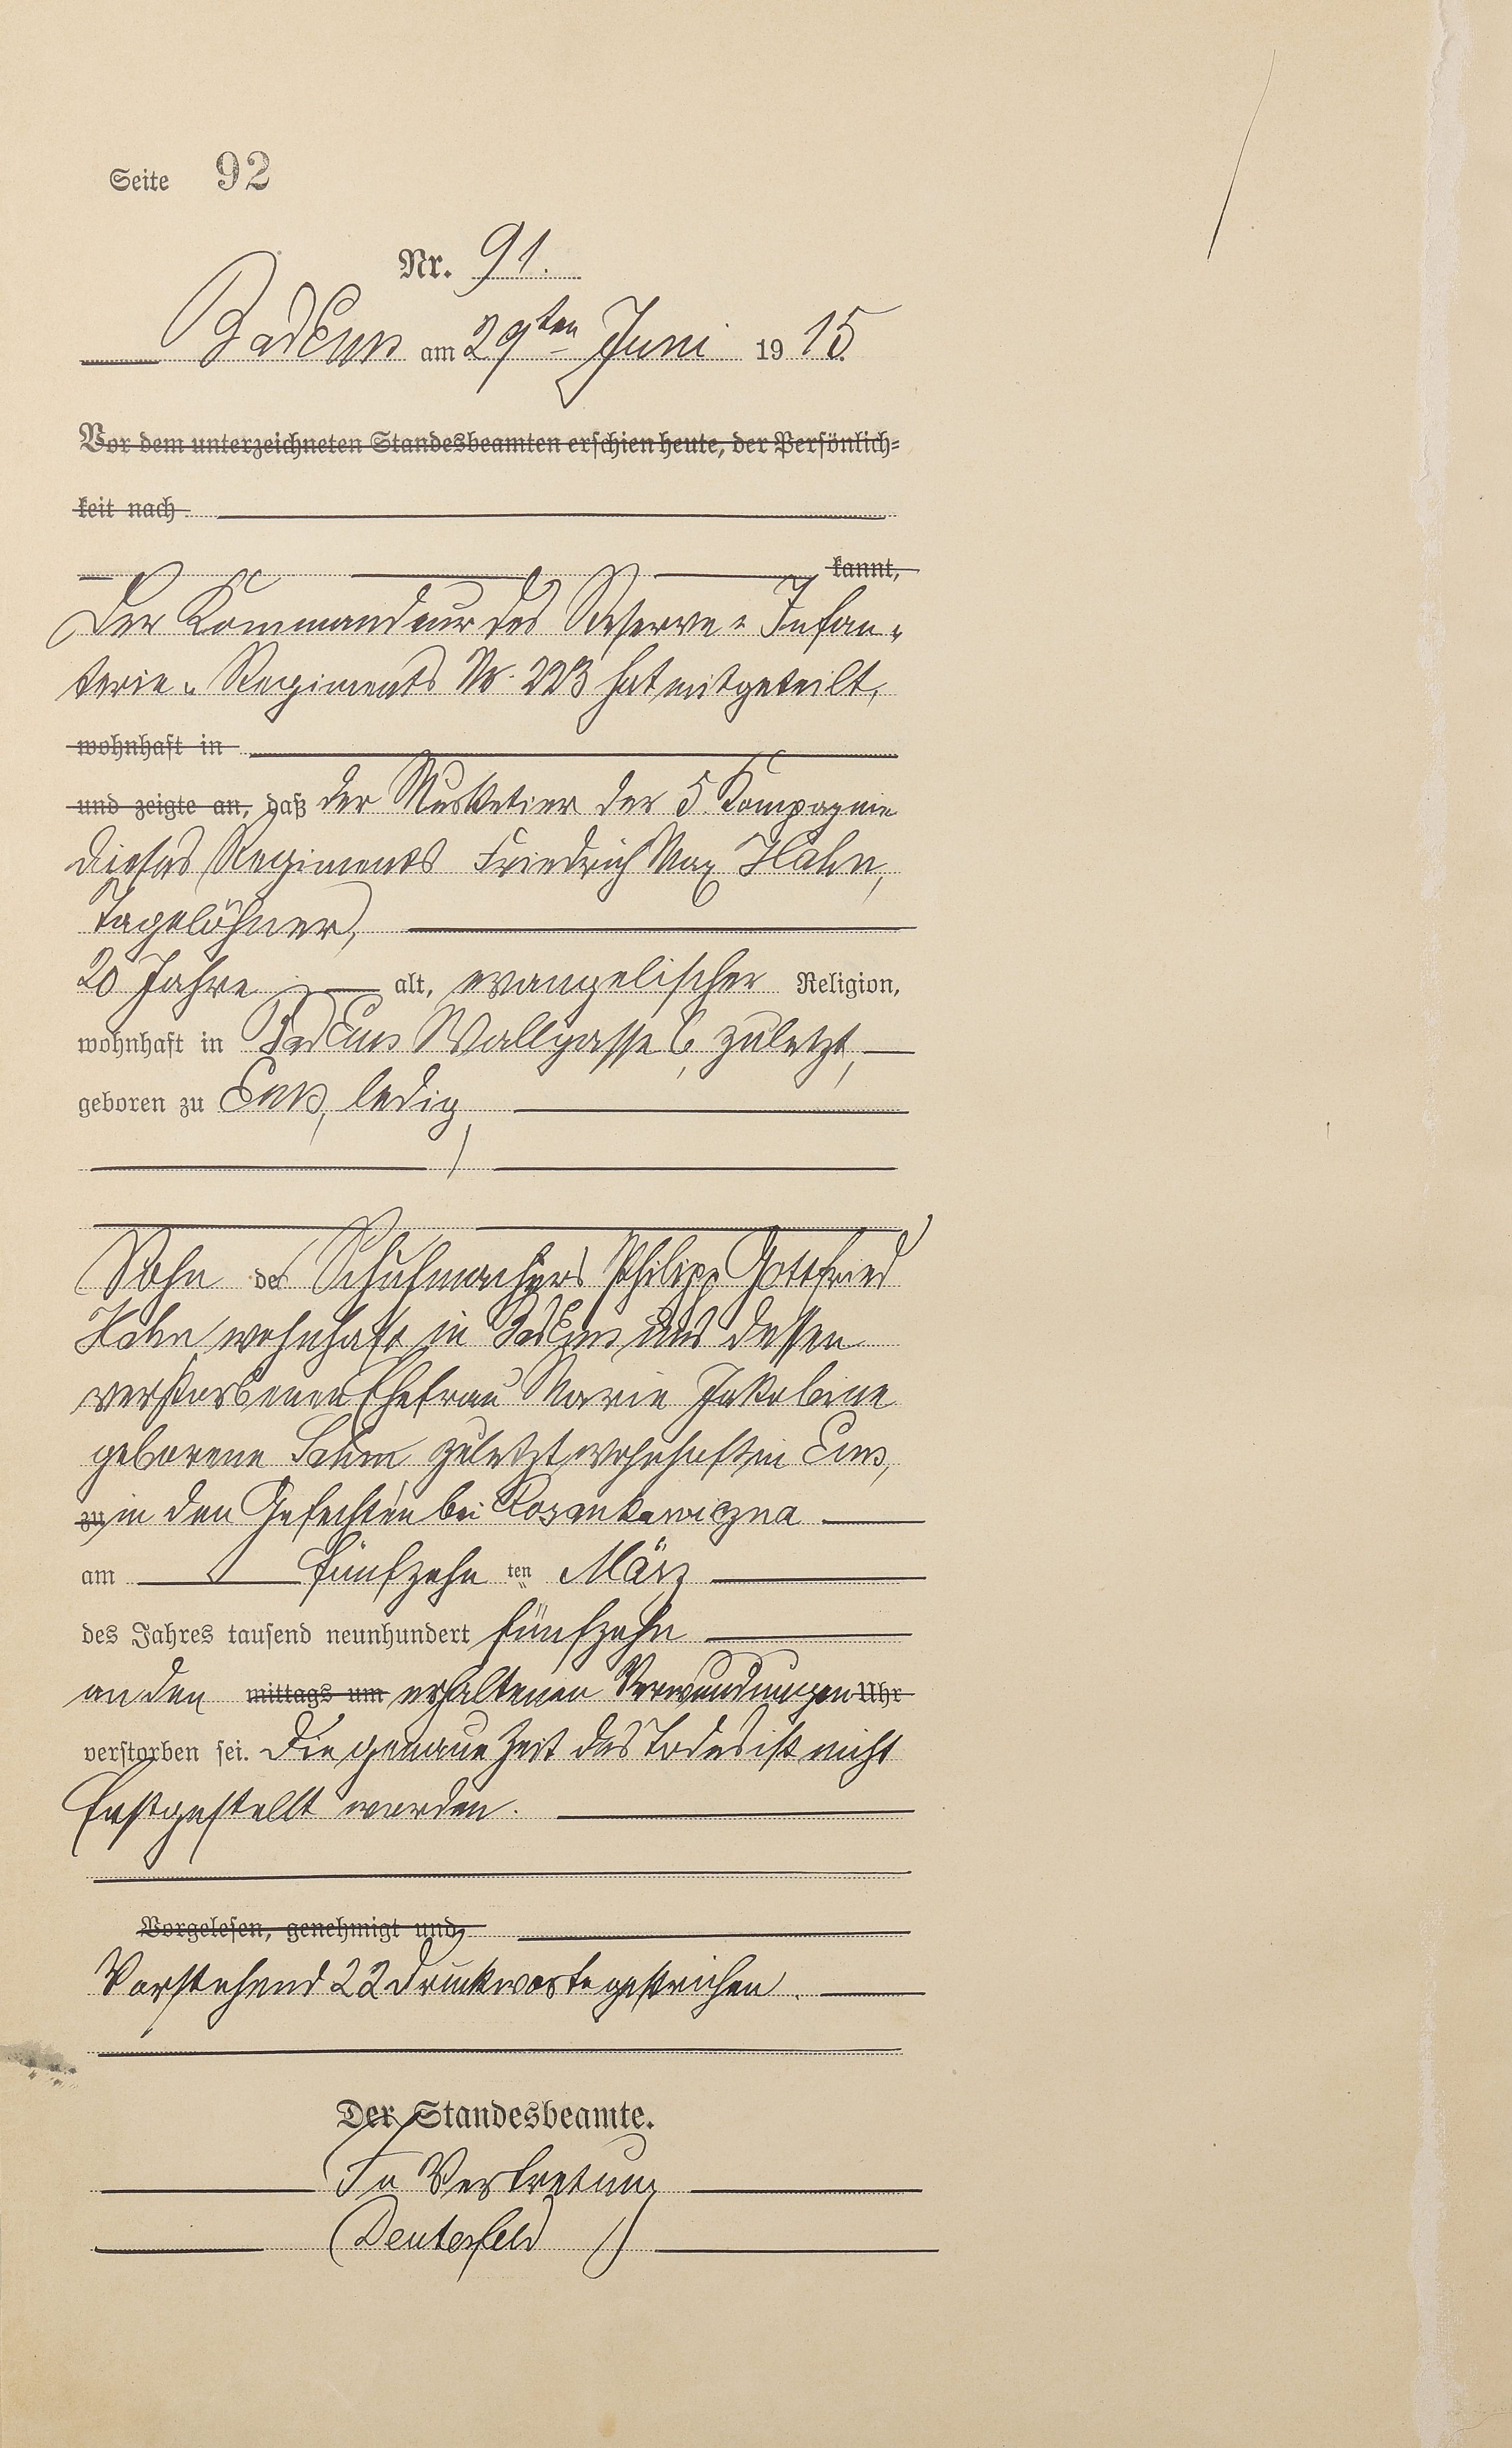 Seite 92
Nr. 91.
Bad Ems am 29ten Juni 1915.
Vor dem unterzeichneten Standesbeamten erschien heute, der Persönlich=
keit nach
kannt,
Der Kommandeur des Reserve=Infan=
terie=Regiments Nr. 223 hat mitgeteilt,
wohnhaft in
und zeigte an, daß der Musketier der 5. Kompagnie
dieses Regiments Friedrich Max Hahn,
Tagelöhner,
20 Jahre alt, evangelischer Religion,
wohnhaft in Bad Ems Wallgasse 6, zuletzt,
geboren zu Ems, ledig,
Sohn des Schuhmachers Philipp Gottfried
Hahn wohnhaft in Bad Ems und dessen
verstorbenen Ehefrau Marie Jakobine
geborene zuletzt wohnhaft in Ems,
zu in den Gefechten bei Rozankawiczna
am fünfzehnten März
des Jahres tausend neunhundert fünfzehn
an den mittags um erhaltenen Verwundungen Uhr
verstorben sei. Die genaue Zeit des Todes ist nicht
festgestellt worden.
Vorgelesen, genehmigt und
Vorstehend 22 Druckworte gestrichen.
Der Standesbeamte.
In Vertretung